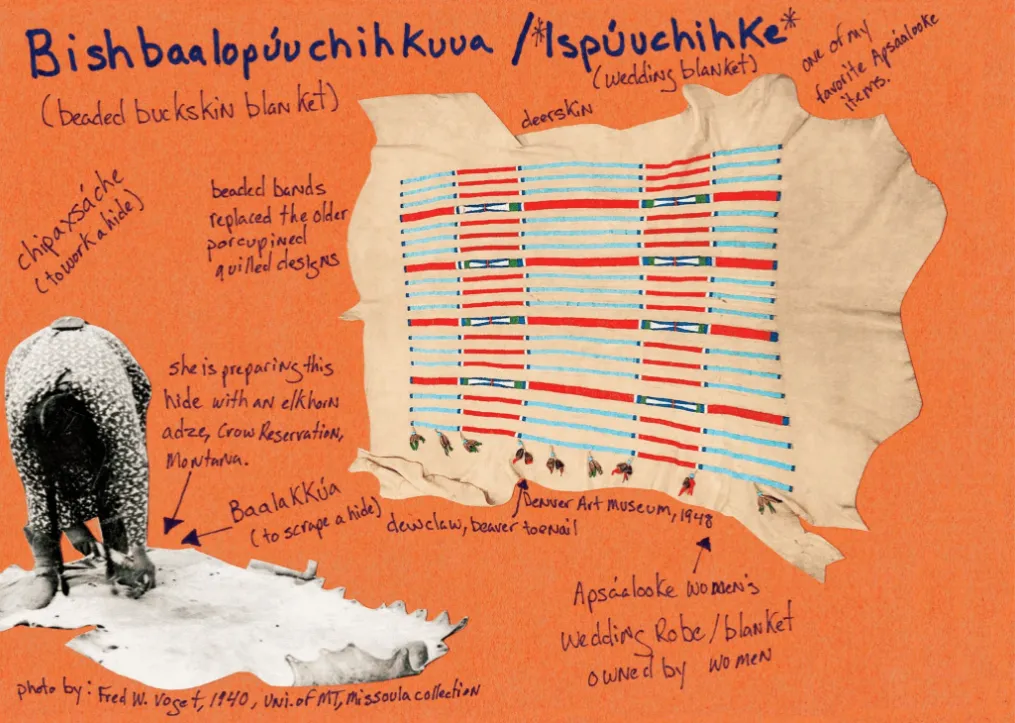 Bishbaalopúuchihkuua / *Ispúuchihke*
(beaded buckskin blanket)
(wedding blanket)
one of my
favorite Apsáalooke
items.
deerskin
chipaxsáche
(to work a hide)
beaded bands
replaced the older
porcupined
quilled designs
she is preparing this
hide with an elkhorn
adze, Crow Reservation,
Montana.
Baalakkúa
(to scrape a hide)
dewclaw, beaver toenail
Denver Art Museum, 1948
Apsáalooke women's
wedding Robe/blanket
owned by women
photo by: Fred W. Voget, 1940, Uni. of MT, Missoula collection